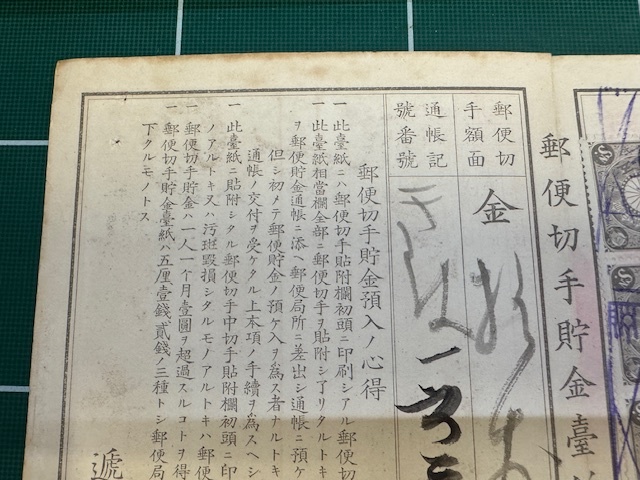 郵便切手貯金臺
郵便切
手額面
金
通帳記
號番號
郵便切手貯金預入ノ心得
一 此臺紙ニハ郵便切手貼附欄初頭ニ印刷シアル郵便切
一 此臺紙相當欄全部ニ郵便切手ヲ貼附シ了リタルトキ
ヲ郵便貯金通帳ニ添ヘ郵便局所ニ差出シ通帳ニ預ケ
但シ初メテ郵便貯金ノ預ケ入ヲ爲ス者ナルトキ
通帳ノ交付ヲ受ケタル上本項ノ手續ヲ爲スヘシ
一 此臺紙ニ貼附シタル郵便切手中切手貼附欄初頭ニ印
ノアルトキ又ハ汚斑毀損シタルモノアルトキハ郵便
一 郵便切手貯金ハ一人一个月壹圓ヲ超過スルコトヲ得
一 郵便切手貯金臺紙ハ五厘壹錢貳錢ノ三種トシ郵便局
下タルモノトス
遞